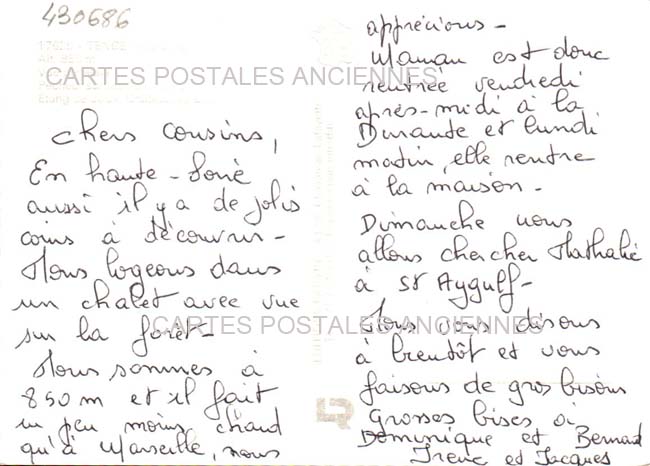 430686
CARTES POSTALES ANCIENNES
Chers cousins,
En haute-Loire
aussi il y a de jolis
coins à découvrir-
Nous logeons dans
un chalet avec vue
sur la forêt-
CARTES POSTALES ANCIENNES
Nous sommes à
850m et il fait
un peu moins chaud
qu'à Marseille, nous
apprécions-
Maman est donc
rentrée vendredi
après-midi à la
Durante et lundi
matin, elle rentre
à la maison-
Dimanche nous
allons chercher Nathalie
à St Aygulf-
Nous vous disons
à bientôt et vous
faisons de gros bisous
Grosses bises à
Dominique et Bernard
Irene et Jacques